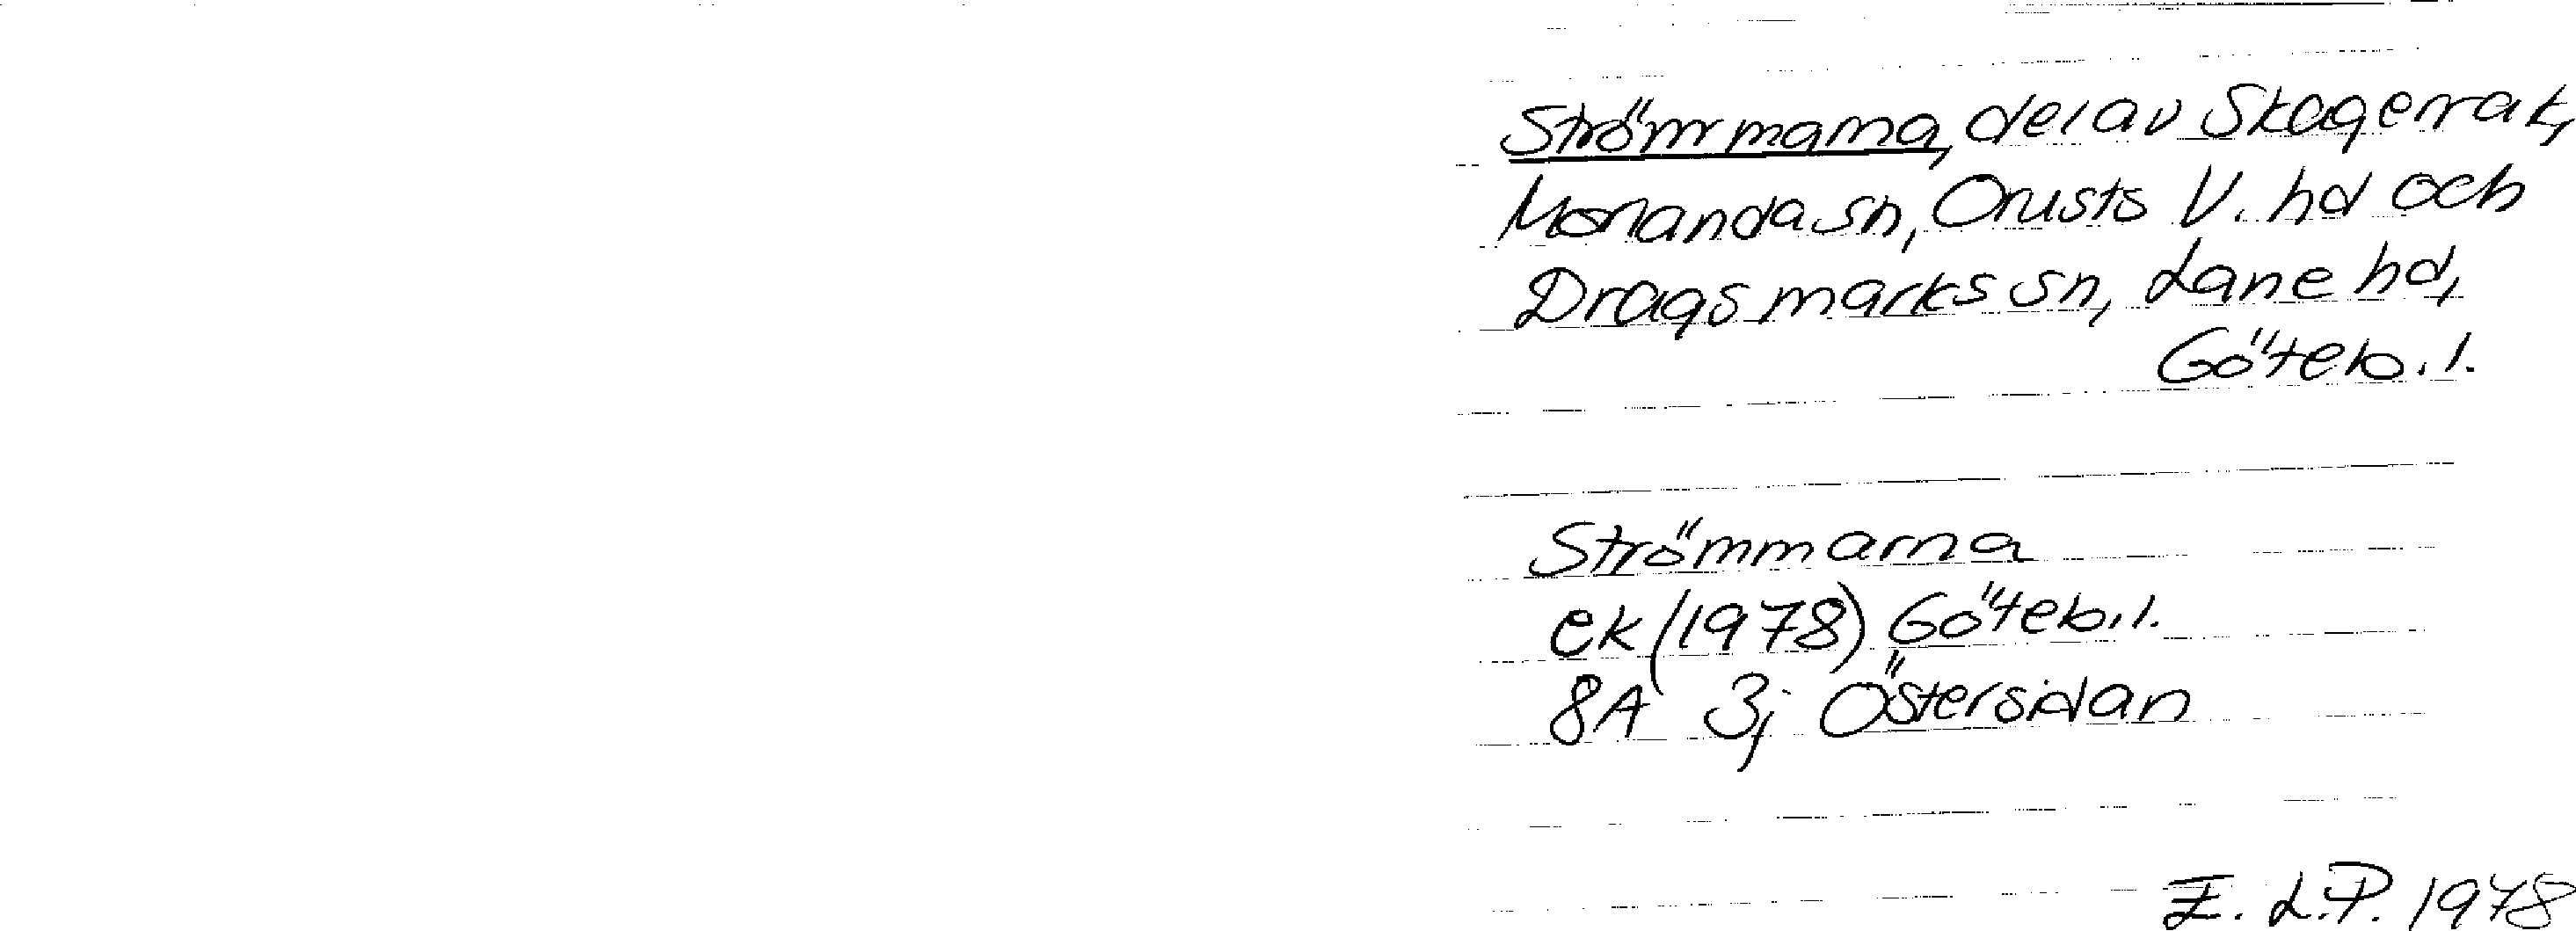 Strömmarna, del av Skagerrak,
Morlanda sn, Orusts V. hd och
Dragsmarks sn, Lane hd,
Göteb. l.
Strömmarna
ek (1978) Göteb. l.
8A 3j Östersidan
E. L. P. 1978